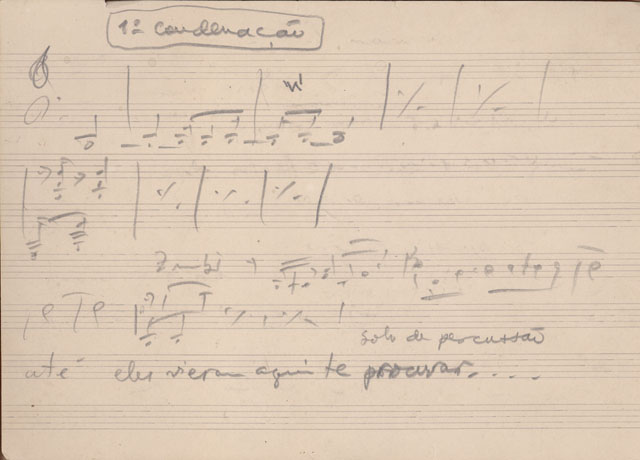 1ª condenação
Zumbi
solo de percussão
até eles vieram aqui te procurar.....